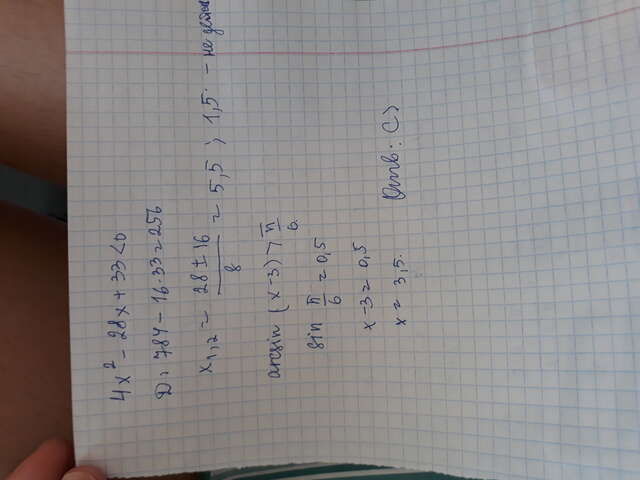 4x² - 28x + 33 < 0
D: 784 - 16·33 = 256
x₁,₂ = (28 ± 16)/8 = 5,5 ; 1,5 - не
arcsin (x-3) > π/6
sin π/6 = 0,5
x-3 = 0,5
x = 3,5. Отв: C)